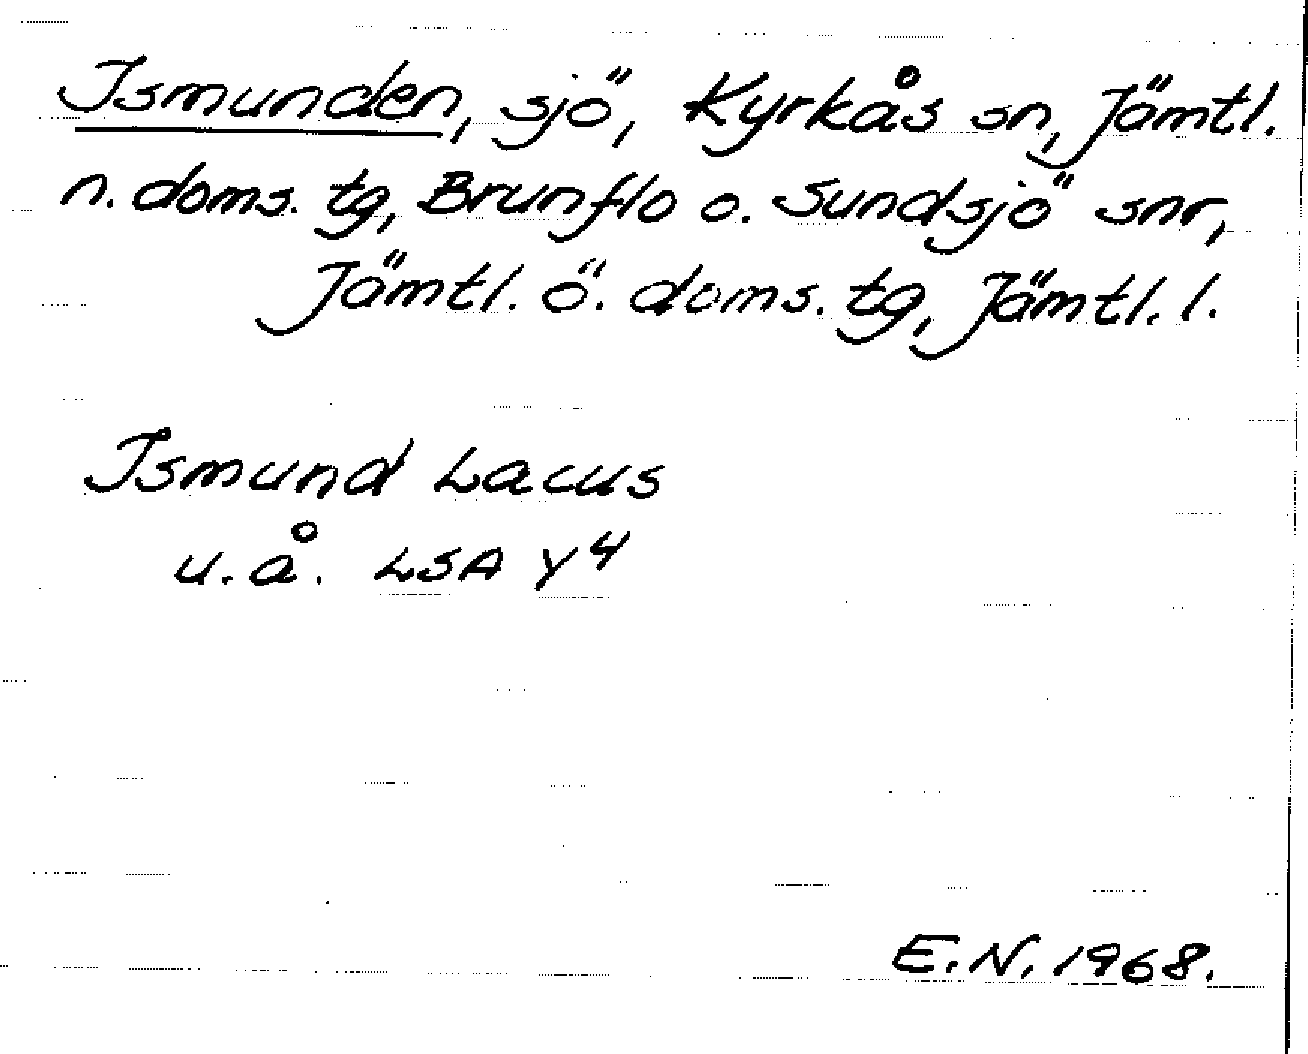 Ismunden, sjö, Kyrkås sn, Jämtl.
n. doms. tg, Brunflo o. Sundsjö snr,
Jämtl. ö. doms. tg, Jämtl. l.
Ismund Lacus
u. å. LSA Y4
E.N. 1968.